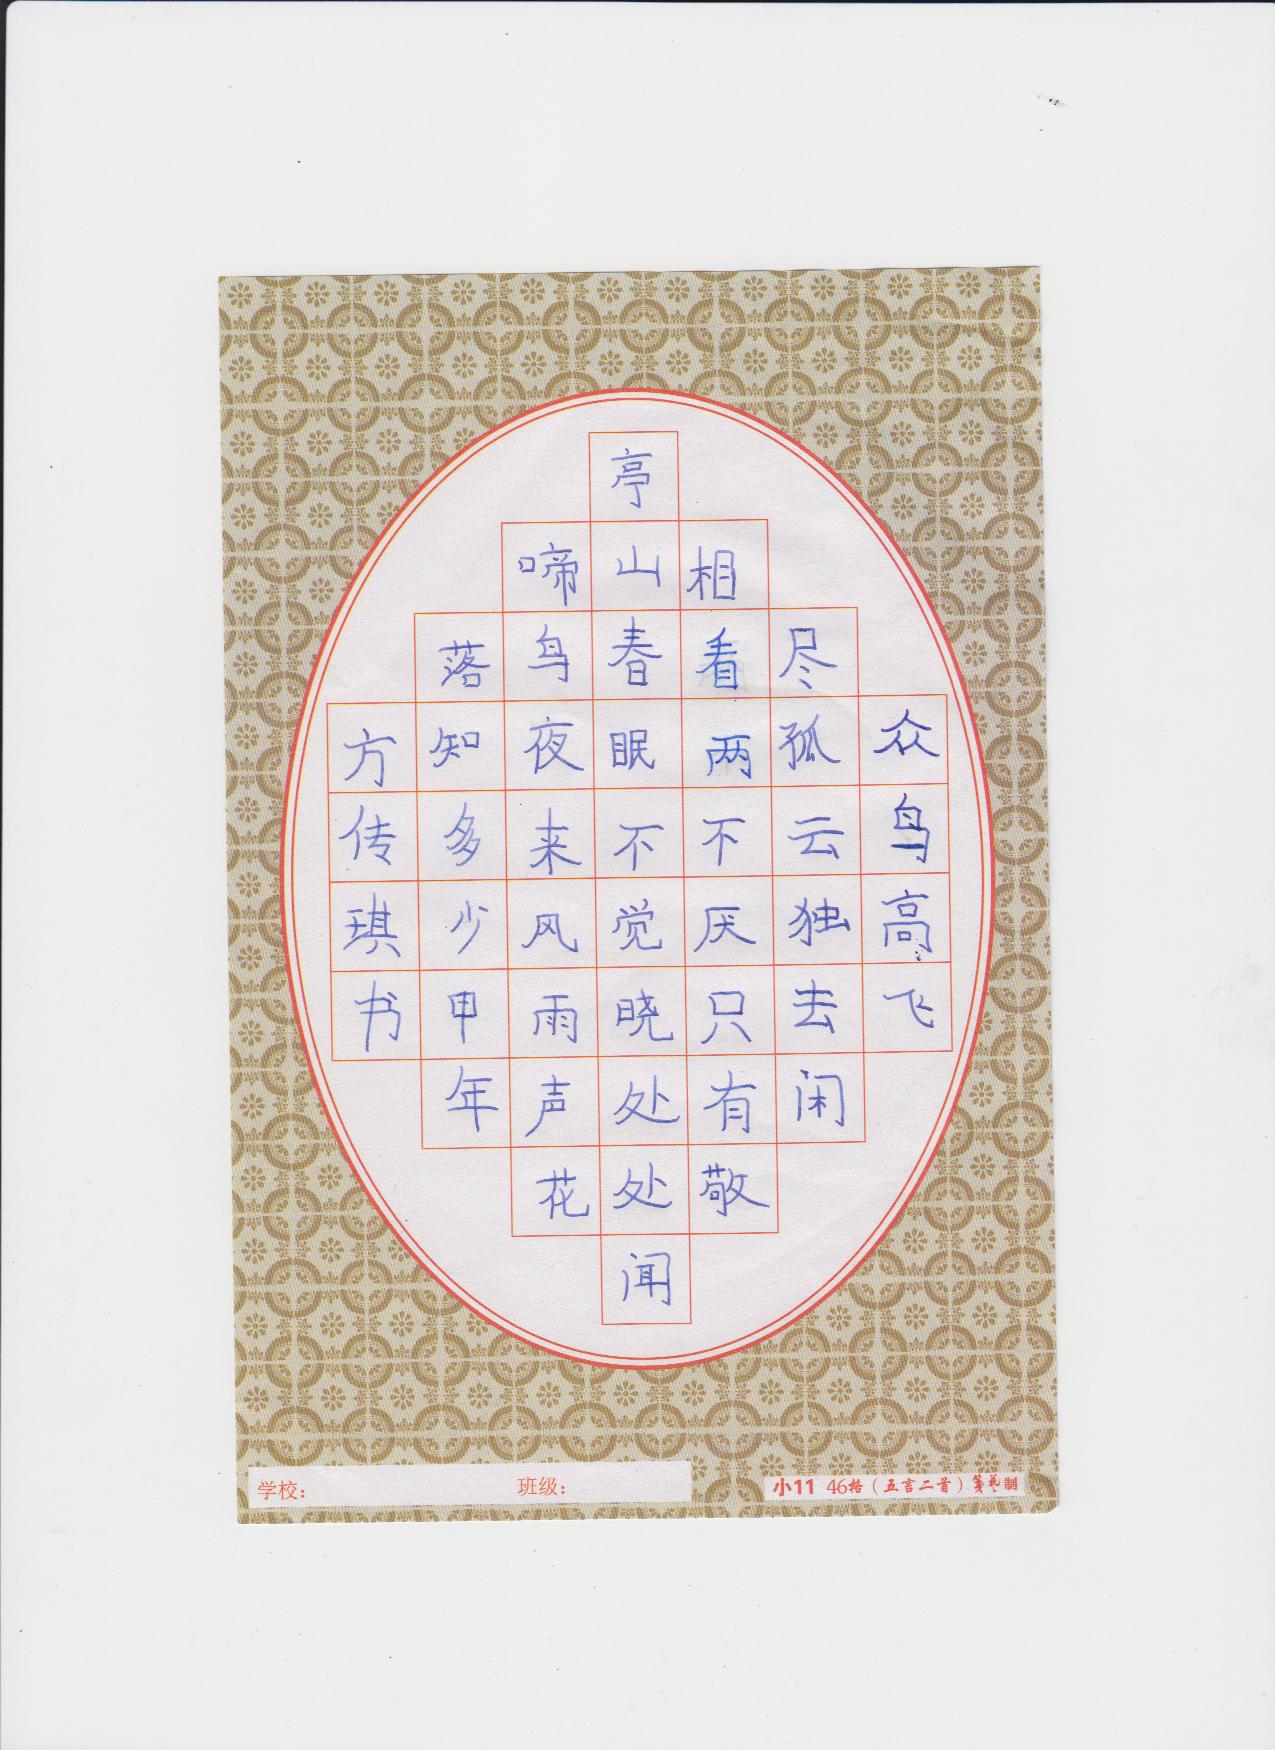 众鸟高飞
尽孤云独去闲
相看两不厌只有敬
亭山春眠不觉晓处处闻
啼鸟夜来风雨声花
落知多少甲年
方传琪书
学校： 班级：
小11 46格（五言二首）笺艺制